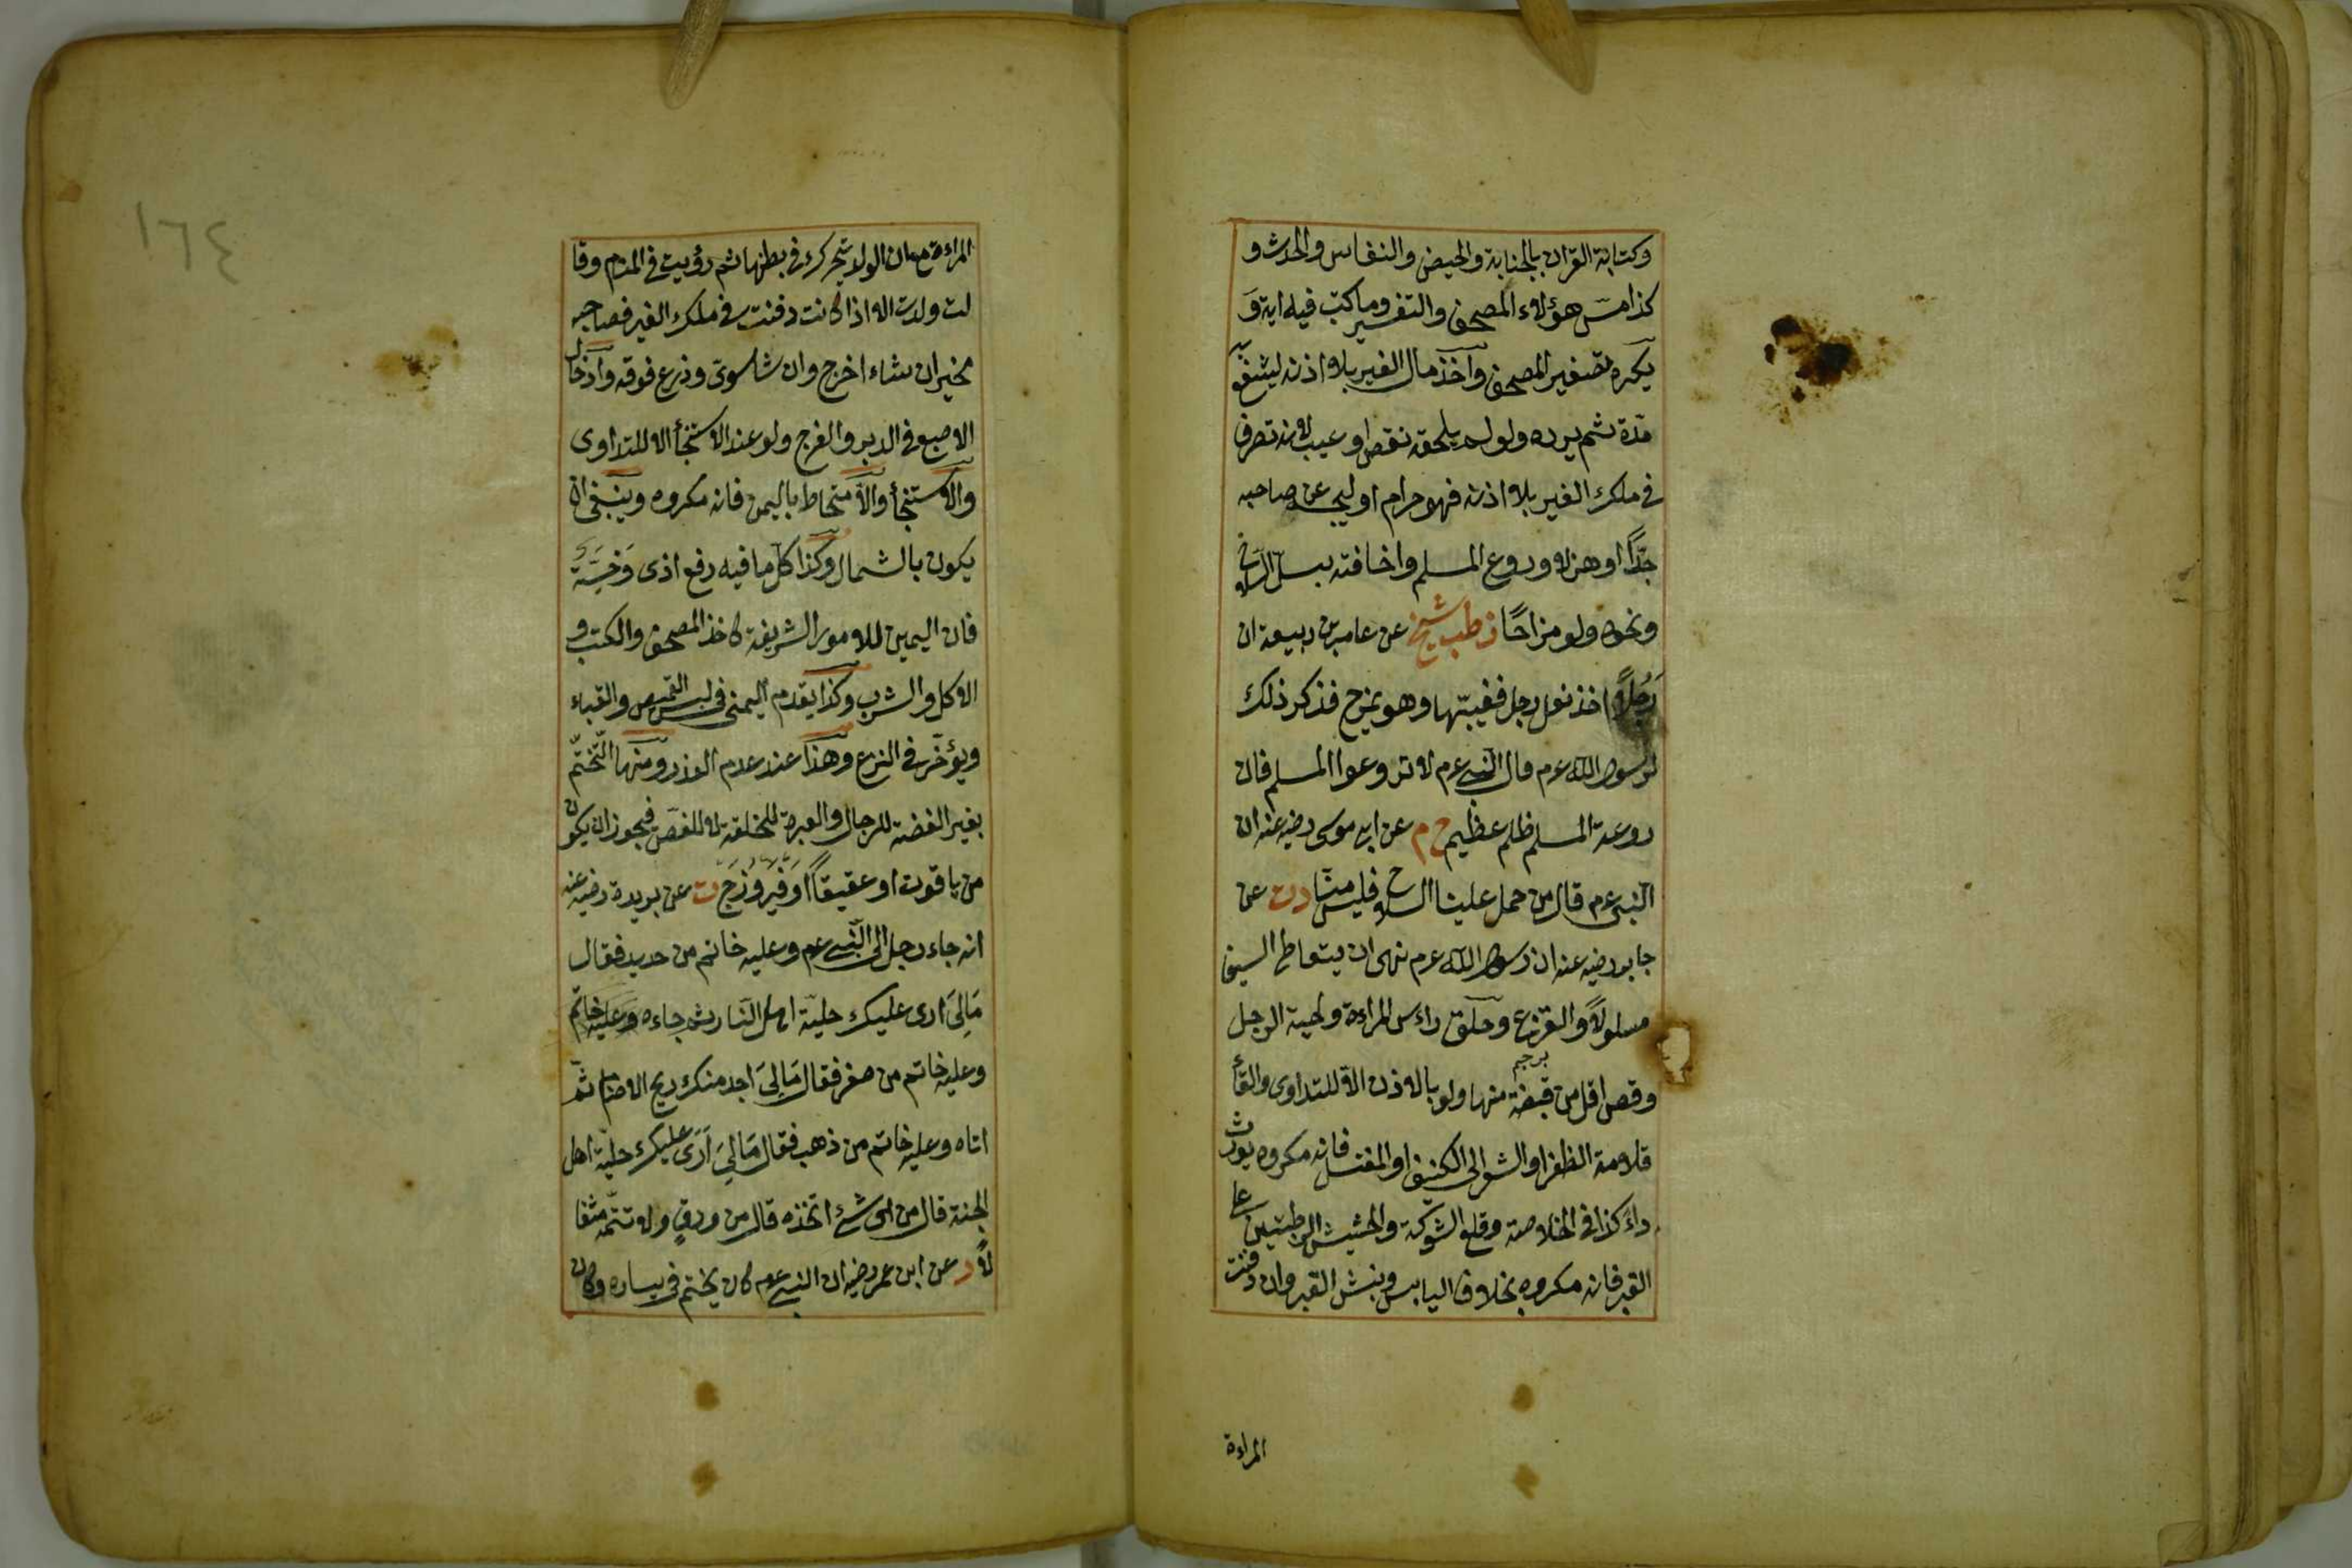 وكتابة القران بالجنابة والحيض والنفاس والحدث و
كذا مس هؤلاء المصحف والتفسير وما كتب فيه اية وَ
يكره تصغير المصحف واخذ مال الغير بلا اذنه لينتفع به
مدة ثم يرده ولو لم يلحقه نقص او عيب لانه تصرف
فى ملك الغير بلا اذنه فهو حرام اوليحـ عن صاحبه
جدًّا او هزلا وروع المسلم واخافته بسل السلاح
ونحوه ولو مزاحًا ز طب شيخ عن عامر بن ربيعة ان
رَجُلاً اخذ نعل رجل فغيبتها وهو يمزح فذكر ذلك
لرسول الله عم قال النبى عم لا تروعوا المسلم فان
روعة المسلم ظلم عظيم خ م عن ابى موسى رضيه عنه ان
النبى عم قال من حمل علينا السلاح فليس منّا دت عن
جابر رضيه عنه ان رسول الله عم نهى ان يتعاطى السيف
مسلولاً والقزع وحلق راءس المراءة ولحية الرجل
وقص اقل من قبضة منها ولو بالاذن الا للتداوى والقاء
برجم
قلامة الظفر او الشعر الى الكنيف او المغتسل فانه مكروه يورث
داء كذا فى الخلاصة وقلع الشوكة والحشيش الرطبتين على
القبر فانه مكروه بخلاف اليابس ونبش القبر وان دفنت
المراءة
١٦٤
المراءة مع ان الولد يتحرك فى بطنها ثم رؤيت فى المنام وقا
لت ولدت الا اذا كانت دفنت فى ملك الغير فصاحبه
مخير ان شاء اخرج وان شا سوى وزرع فوقه وادخال
الاصبع فى الدبر والفرج ولو عند الاستنجأ الا للتداوى
والاستنجأ والامتخاط باليمين فانه مكروه وينبغى ان
يكون بالشمال وكذا كل ما فيه رفع اذى وَخِسَّة
فان اليمين للامور الشريفة كاخذ المصحف والكتب و
الاكل والشرب وكذا يقدم اليمنى فى لبس القميص والقباء
ويؤخر فى النزع وهذا عند عدم العذر ومنها التختّم
بغير الفضة للرجال والعبرة للحلقة لا للفصّ فيجوز ان يكون
من ياقوت او عقيقًا اَوْ فَيْرُوزَج ت عن بريدة رضيه عنه
انه جاء رجل الى النبى عم وعليه خاتم من حديد فقال
مَالِىَ ارى عليك حلية اهل النار ثم جاءه وعليه خاتم
وعليه خاتم من صفر فقال مَالِىَ اجد منك ريح الاصنام ثمّ
اتاه وعليه خاتم من ذهب فقال مَالِىَ اَرَى عليك حلية اهل
الجنة قال من اى شئ اتخذه قال من ورق ولا تتمّه مثقا
لاً د عن ابن عمر رضيه ان النبى عم كان يختم فى يساره وكان